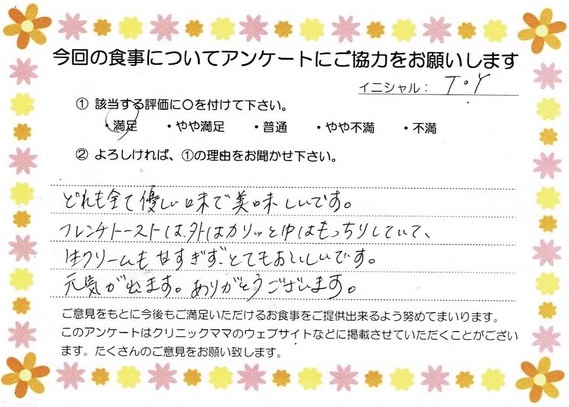 今回の食事についてアンケートにご協力をお願いします
イニシャル： T・Y
① 該当する評価に〇を付けて下さい。
・満足 ・やや満足 ・普通 ・やや不満 ・不満
② よろしければ、①の理由をお聞かせ下さい。
どれも全て優しい味で美味しいです。
フレンチトーストは、外はカリッと中はもっちりしていて、
生クリームも すぎず、とてもおいしいです。
元気が出ます。ありがとうございます。
ご意見をもとに今後もご満足いただけるお食事をご提供出来るよう努めてまいります。
このアンケートはクリニックママのウェブサイトなどに掲載させていただくことがござい
ます。たくさんのご意見をお願い致します。